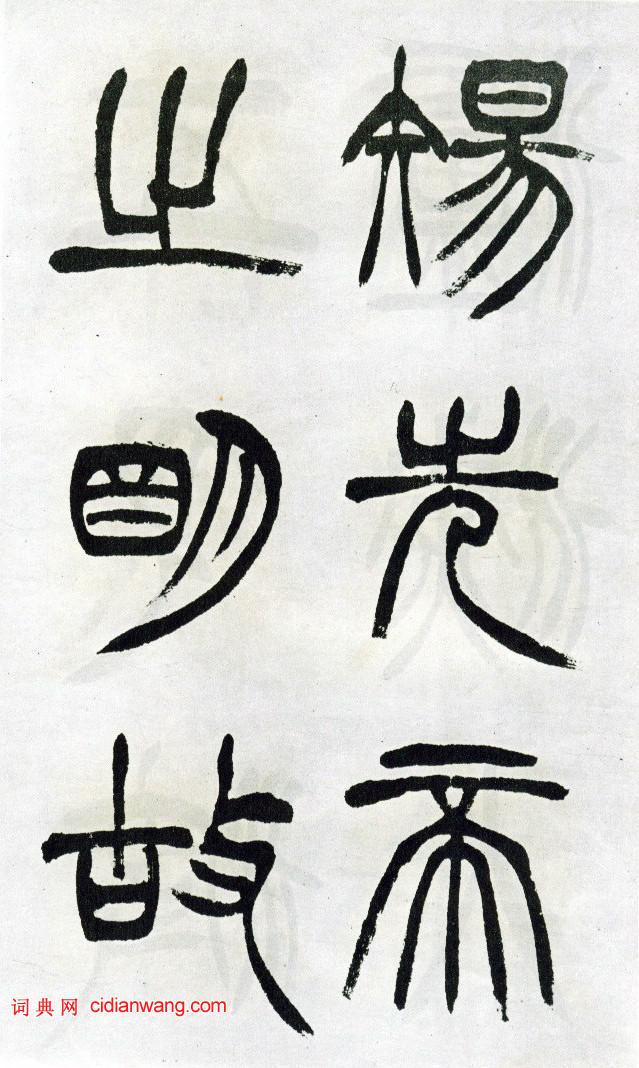 傷先帝
之明故
词典网 cidianwang.com